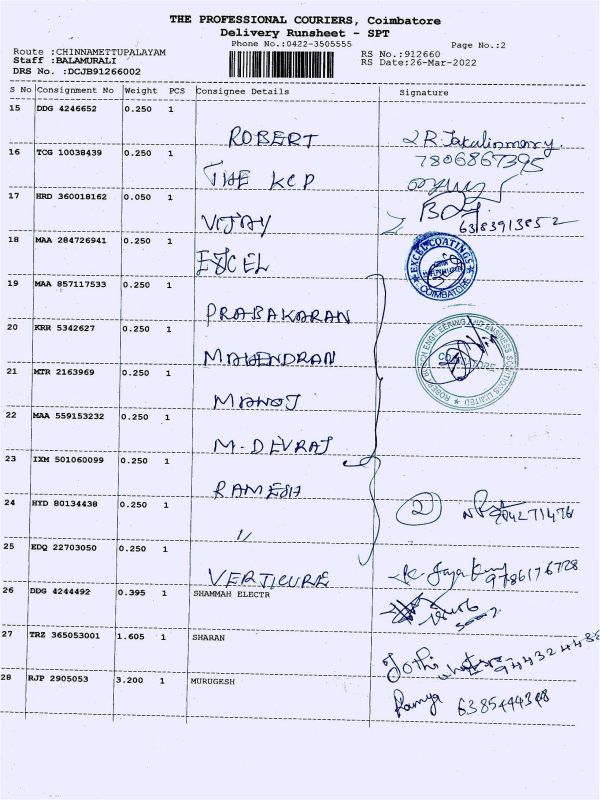 THE PROFESSIONAL COURIERS, Coimbatore
Delivery Runsheet - SPT
Phone No.:0422-3505555
Page No.:2
Route :CHINNAMETTUPALAYAM
Staff :BALAMURALI
DRS No. :DCJB91266002
RS No.:912660
RS Date:26-Mar-2022
S No Consignment No Weight PCS Consignee Details Signature
15 DDG 4246652 0.250 1
ROBERT
16 TCG 10038439 0.250 1
7806867395
THE KCP
17 HRD 360018162 0.050 1
VIJAY
6383913852
18 MAA 284726941 0.250 1
EXCEL
EXCEL COATINGS
COIMBATORE
19 MAA 857117533 0.250 1
PRABAKARAN
20 KRR 5342627 0.250 1
MAHENDRAN
21 MTR 2163969 0.250 1
MANOJ
22 MAA 559153232 0.250 1
M. DEVRAJ
23 IXM 501060099 0.250 1
RAMESH
24 HYD 80134438 0.250 1
2
"
25 EDQ 22703050 0.250 1
VERTICURE
9786176728
26 DDG 4244492 0.395 1 SHAMMAH ELECTR
27 TRZ 365053001 1.605 1 SHARAN
Jothi
28 RJP 2905053 3.200 1 MURUGESH
Ramya 6385444348